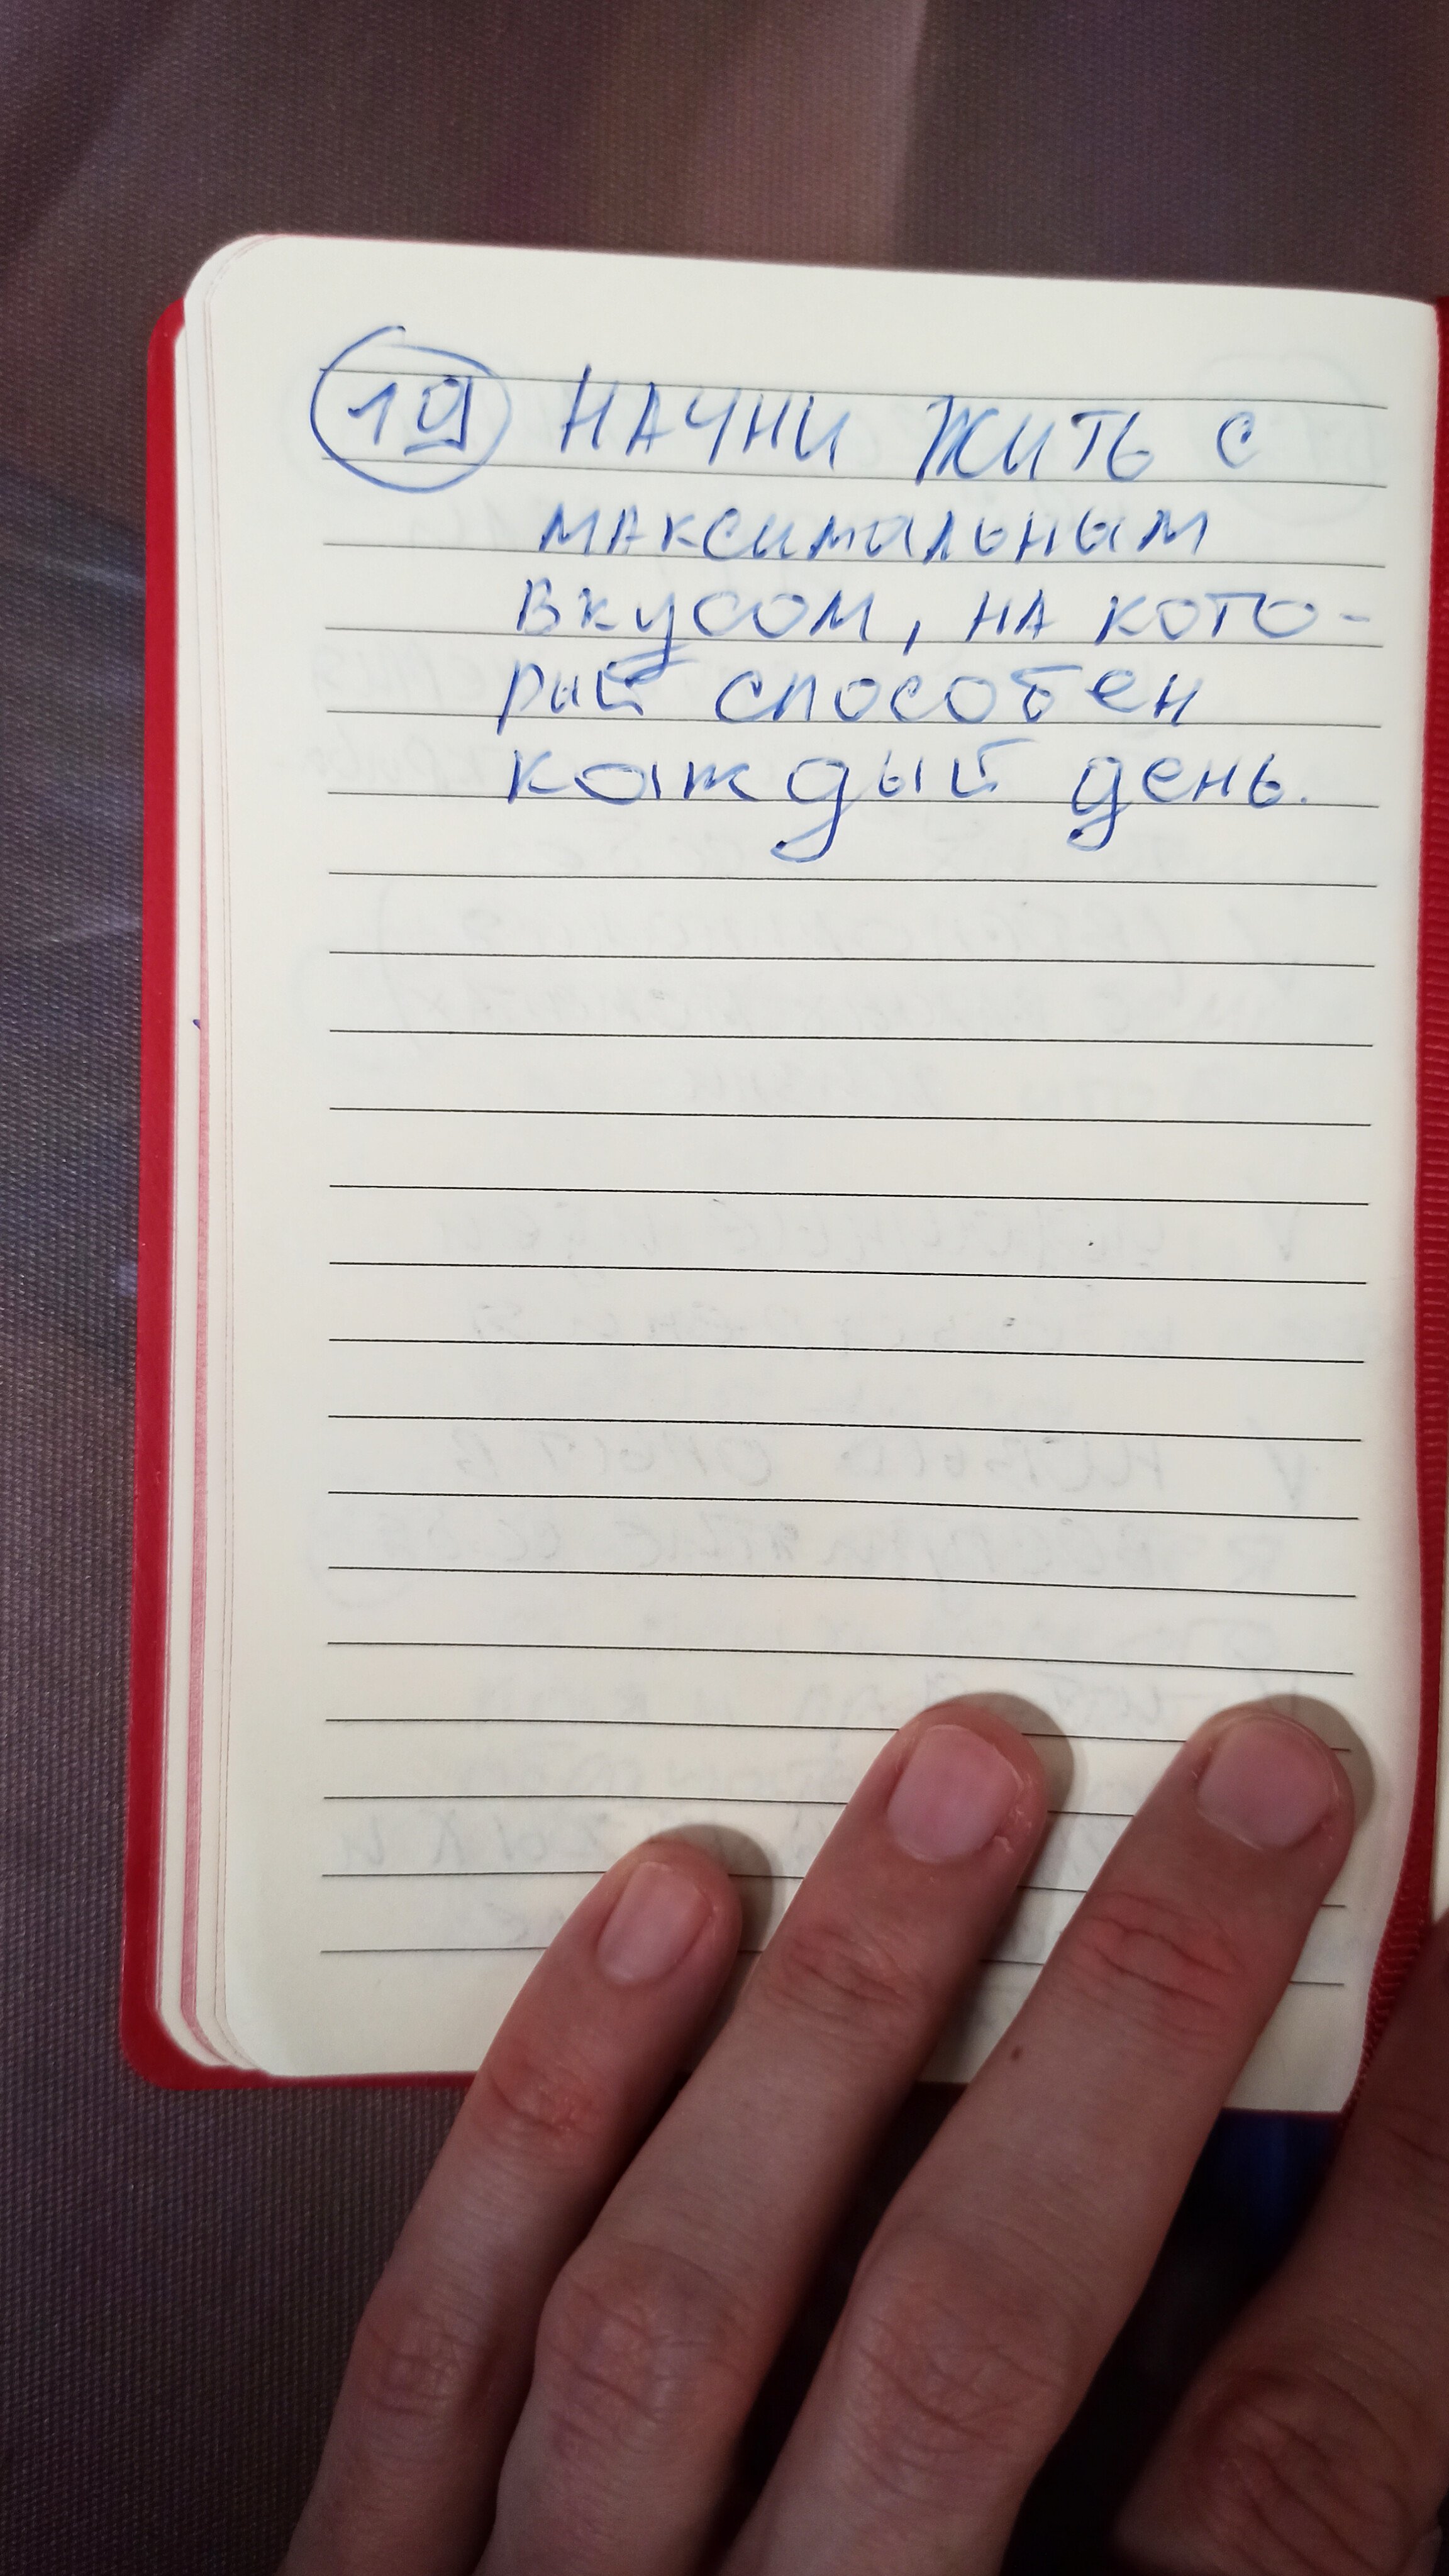 19 НАЧНИ ЖИТЬ С
МАКСИМАЛЬНЫМ
ВКУСОМ, НА КОТО-
РЫЙ СПОСОБЕН
КАЖДЫЙ ДЕНЬ.